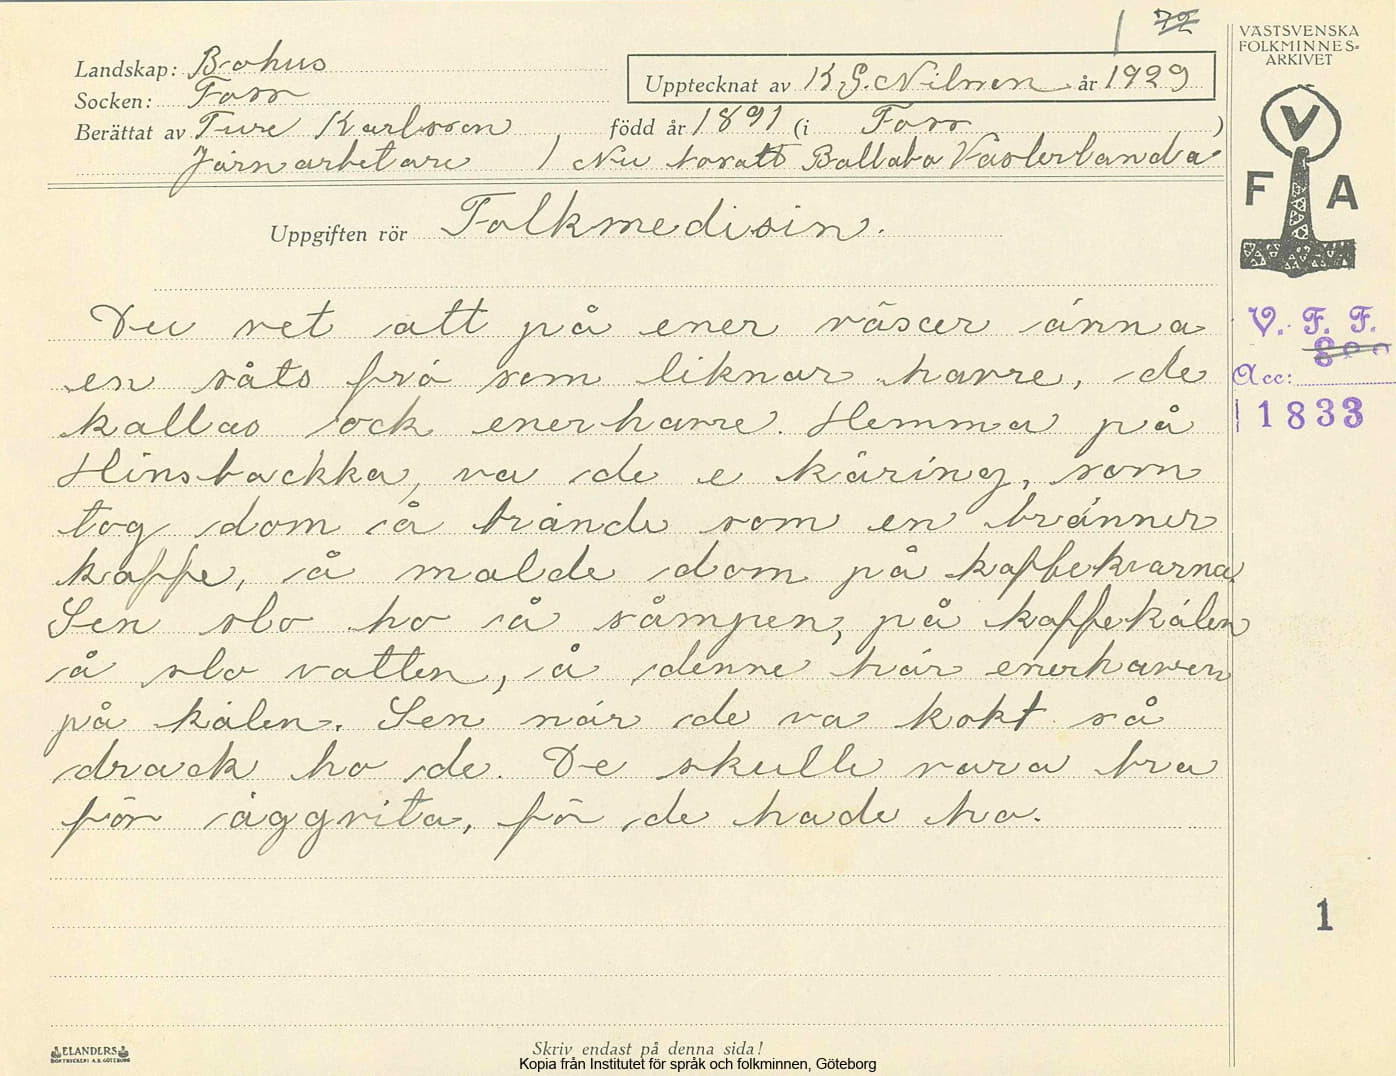 VÄSTSVENSKA
FOLKMINNES-
ARKIVET
Landskap: Bohus
Socken: Forss
Upptecknat av K. G. Nilsson år 1929
Berättat av Ture Karlsson född år 1891 (i Forss )
Järnarbetare / Nu bosatt Ballabo Västerlanda
Uppgiften rör Folkmedisin.
V
F A
Du vet att på ener växer änna
en såts frö som liknar havre, de
kallas ock enerhavre. Hemma på
Hinsbackka, va de e käring, som
tog dom å brände som en bränner
kaffe, å malde dom på kaffekvarna.
Sen slo ho å såmpen, på kaffekälen
å slo vatten, å denne här enerhaven
på kälen. Sen när de va kokt så
drack ho de. De skulle vara bra
för äggvita, för de hade ho.
V. F. F.
Acc:
1833
1
ELANDERS
BOKTRYCKERI A.B. GÖTEBORG
Skriv endast på denna sida!
Kopia från Institutet för språk och folkminnen, Göteborg